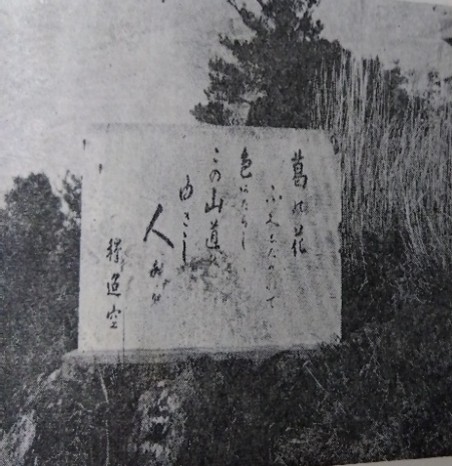 葛の花
ふみしだかれて
色あたらし
この山道を
ゆきし
人あり
釋迢空